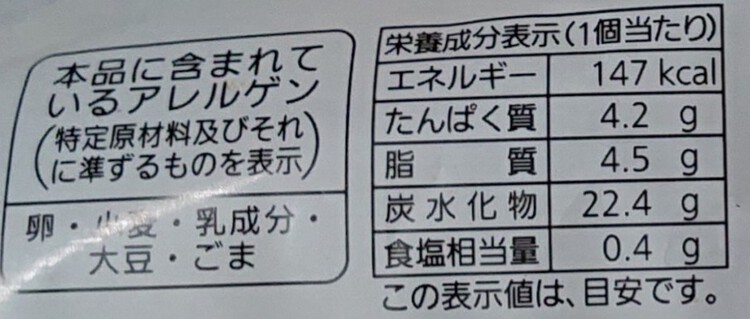 本品に含まれて
いるアレルゲン
(特定原材料及びそれ
に準ずるものを表示)
卵・小麦・乳成分・
大豆・ごま
栄養成分表示(1個当たり)
エネルギー 147 kcal
たんぱく質 4.2 g
脂質 4.5 g
炭水化物 22.4 g
食塩相当量 0.4 g
この表示値は、目安です。